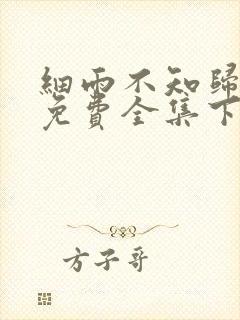 細雨不知歸
免費全集下
方子哥